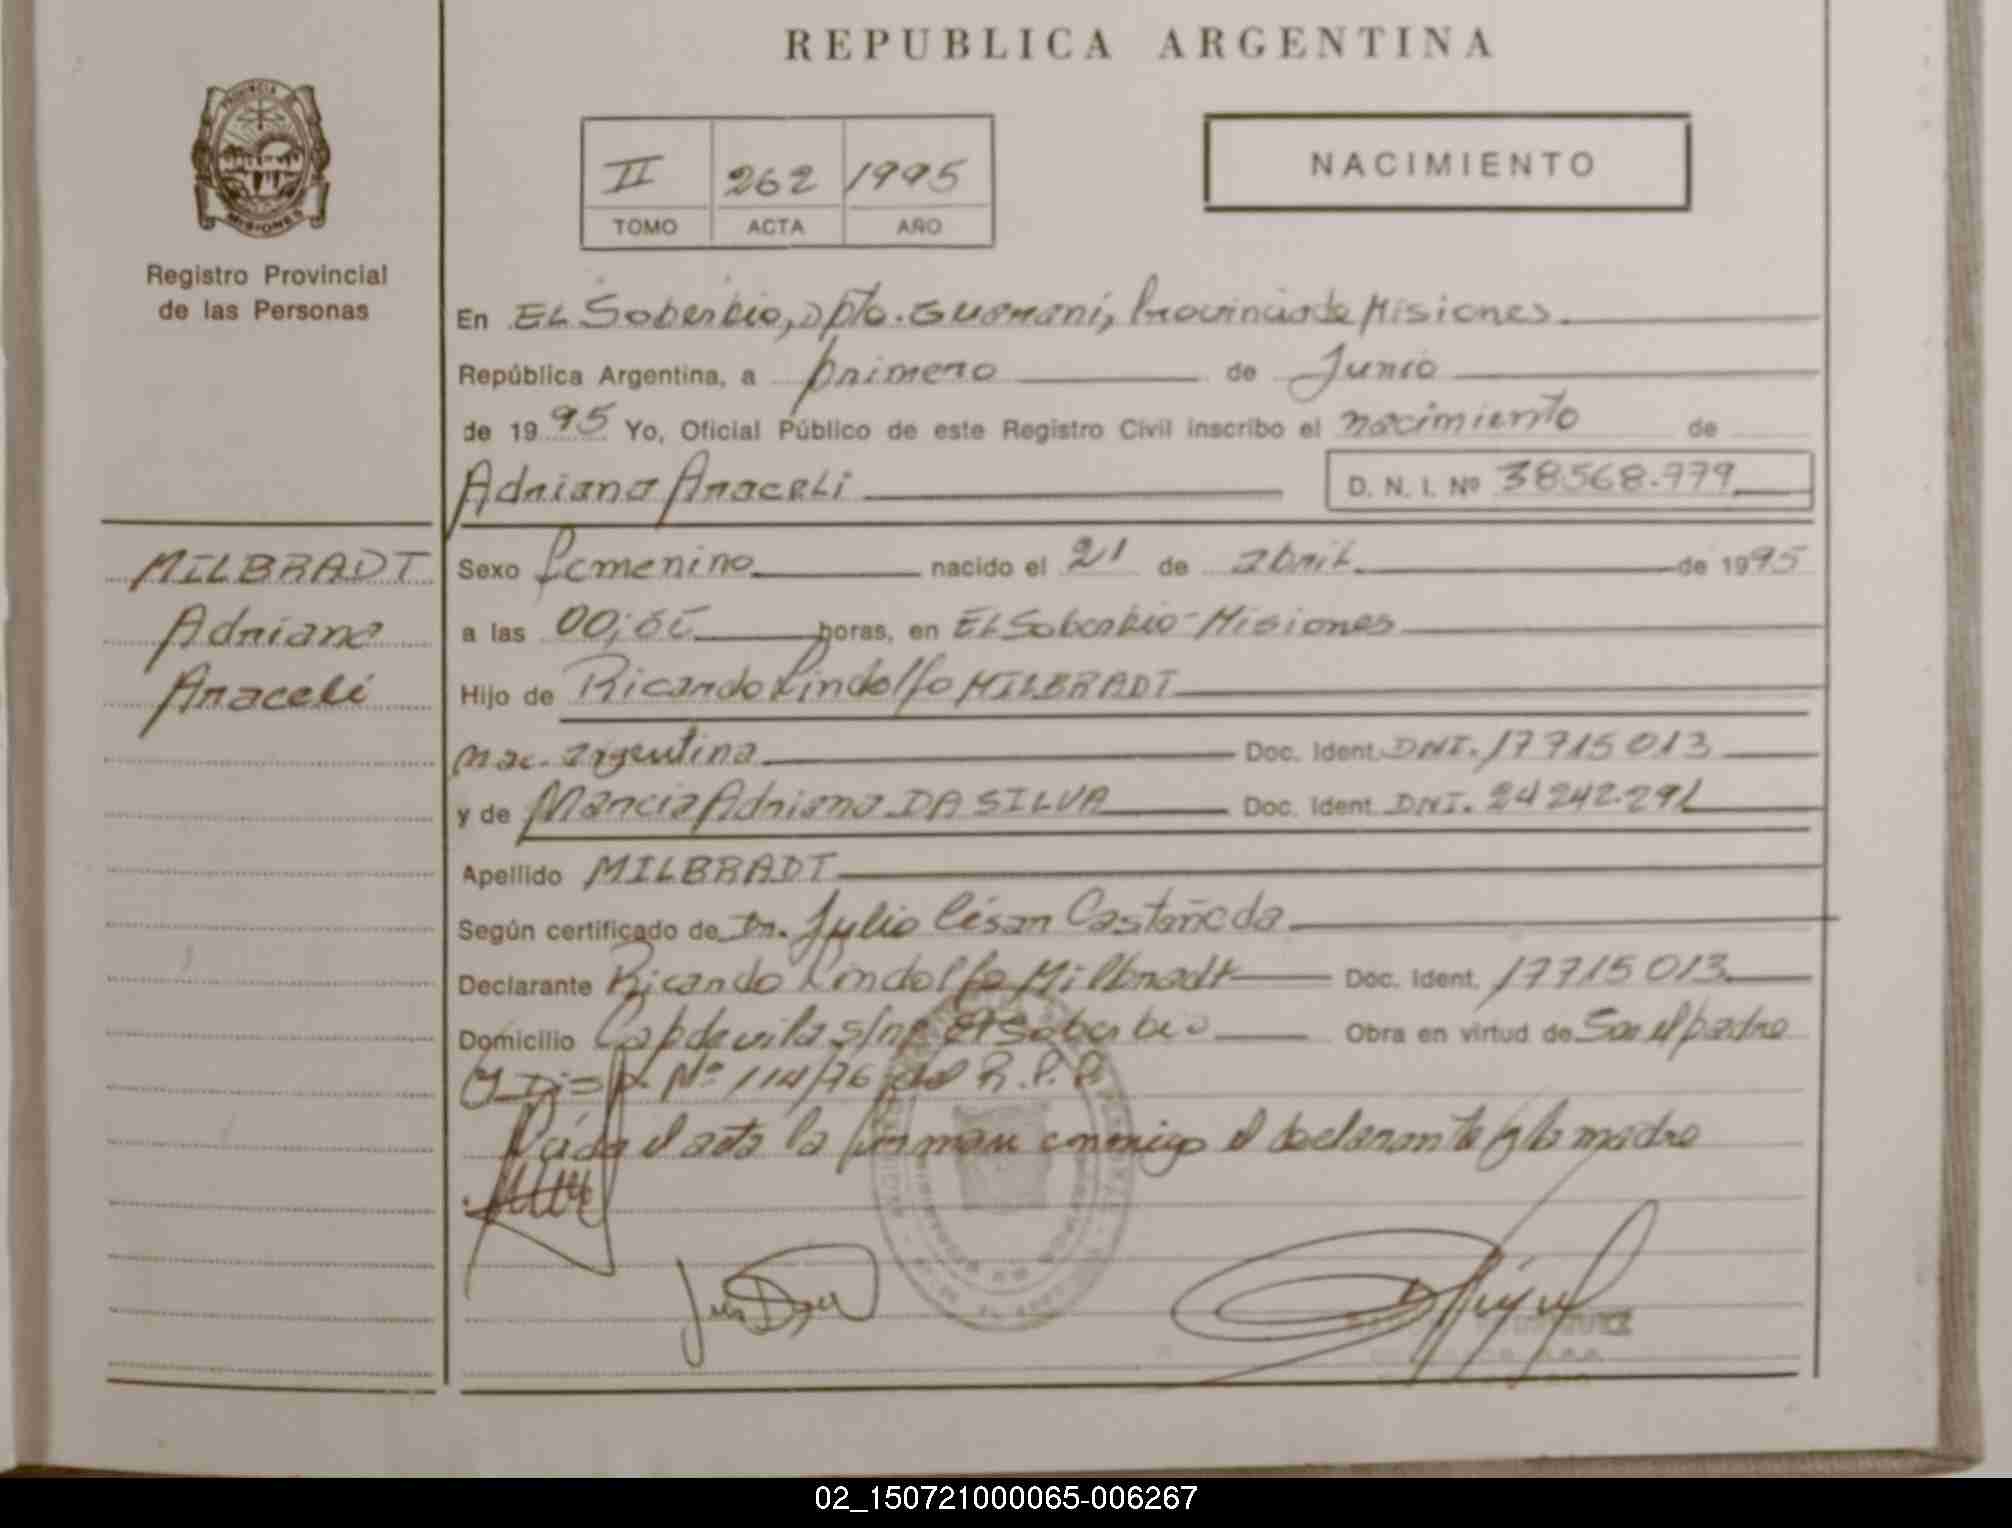 REPUBLICA ARGENTINA
PROVINCIA DE
MISIONES
Registro Provincial
de las Personas
II 262 1995
TOMO ACTA AÑO
NACIMIENTO
En EL Soberbio, Dpto. Guaraní, Provincia de Misiones.
República Argentina, a primero de Junio
de 19 95 Yo, Oficial Público de este Registro Civil inscribo el nacimiento de
Adriana Araceli D. N. I. Nº 38568.979
MILBRADT
Adriana
Araceli
Sexo femenino nacido el 21 de abril de 1995
a las 00; horas, en EL Soberbio - Misiones
Hijo de Ricardo Lindolfo MILBRADT
nac. argentina Doc. Ident. DNI. 17715013
y de Marcia Adriana DA SILVA Doc. Ident. DNI. 24242.291
Apellido MILBRADT
Según certificado de Dr. Julio César Castañeda
Declarante Ricardo Lindolfo Milbradt Doc. Ident. 17715013
Domicilio Capdevila s/nº El Soberbio Obra en virtud de Ser el padre
y Disp. Nº 114/76 del R.P.P.
Leída el acta la firman conmigo el declarante y la madre
02_150721000065-006267